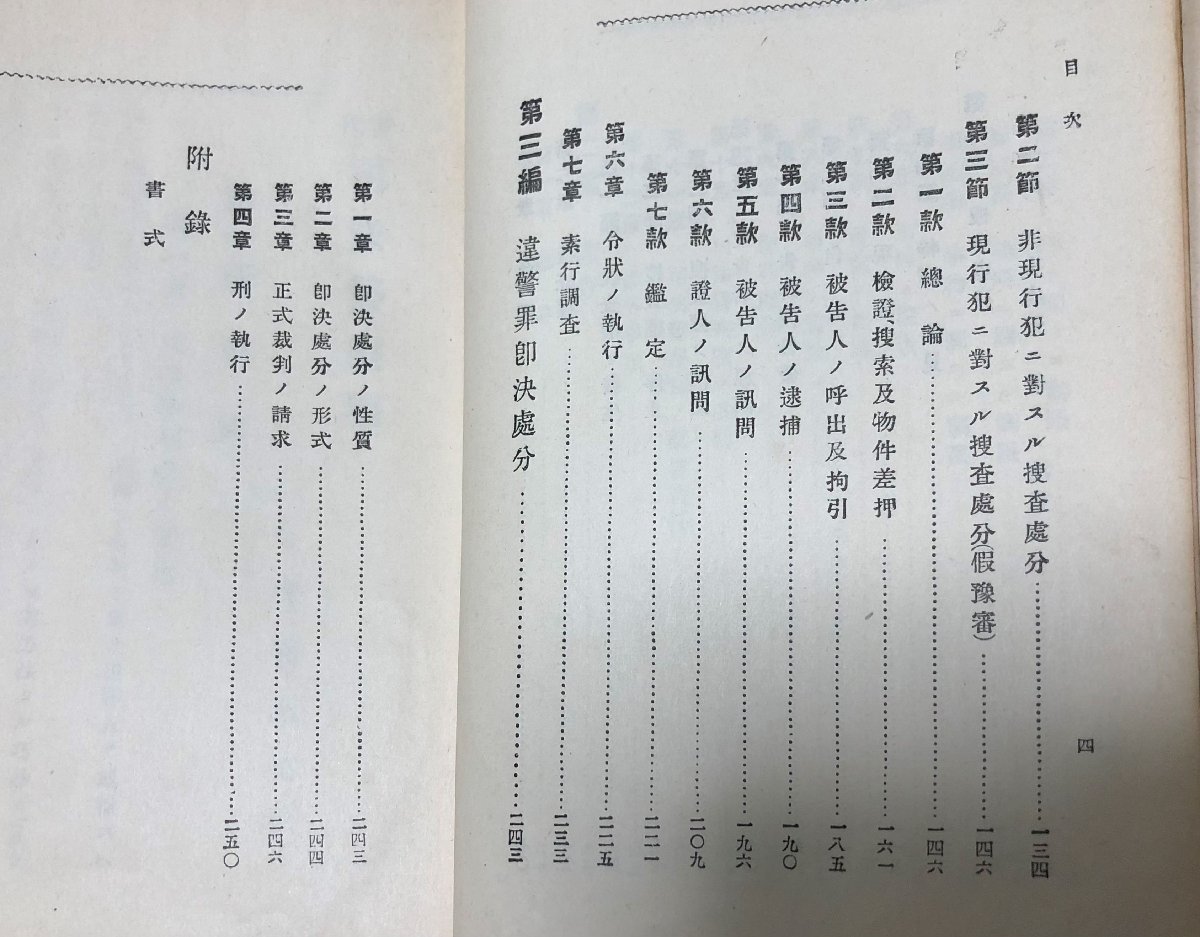 目次
第二節 非現行犯ニ對スル搜査處分…………一三四
第三節 現行犯ニ對スル搜査處分(假豫審)…………一四六
第一款 總論…………一四六
第二款 檢證、搜索及物件差押…………一六一
第三款 被告人ノ呼出及拘引…………一八五
第四款 被告人ノ逮捕…………一九〇
第五款 被告人ノ訊問…………一九六
第六款 證人ノ訊問…………二〇九
第七款 鑑定…………二二一
第六章 令狀ノ執行…………二二五
第七章 素行調査…………二三三
第三編 違警罪卽決處分…………二四三
四
第一章 卽決處分ノ性質…………二四三
第二章 卽決處分ノ形式…………二四四
第三章 正式裁判ノ請求…………二四六
第四章 刑ノ執行…………二五〇
附錄
書式